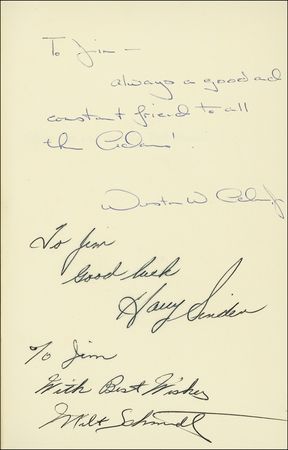 To Jim –
always a good and
constant friend to all
the Adams'.
Weston W Adams Jr
To Jim
Good luck
Harry Sinden
To Jim
With Best Wishes
Milt Schmidt